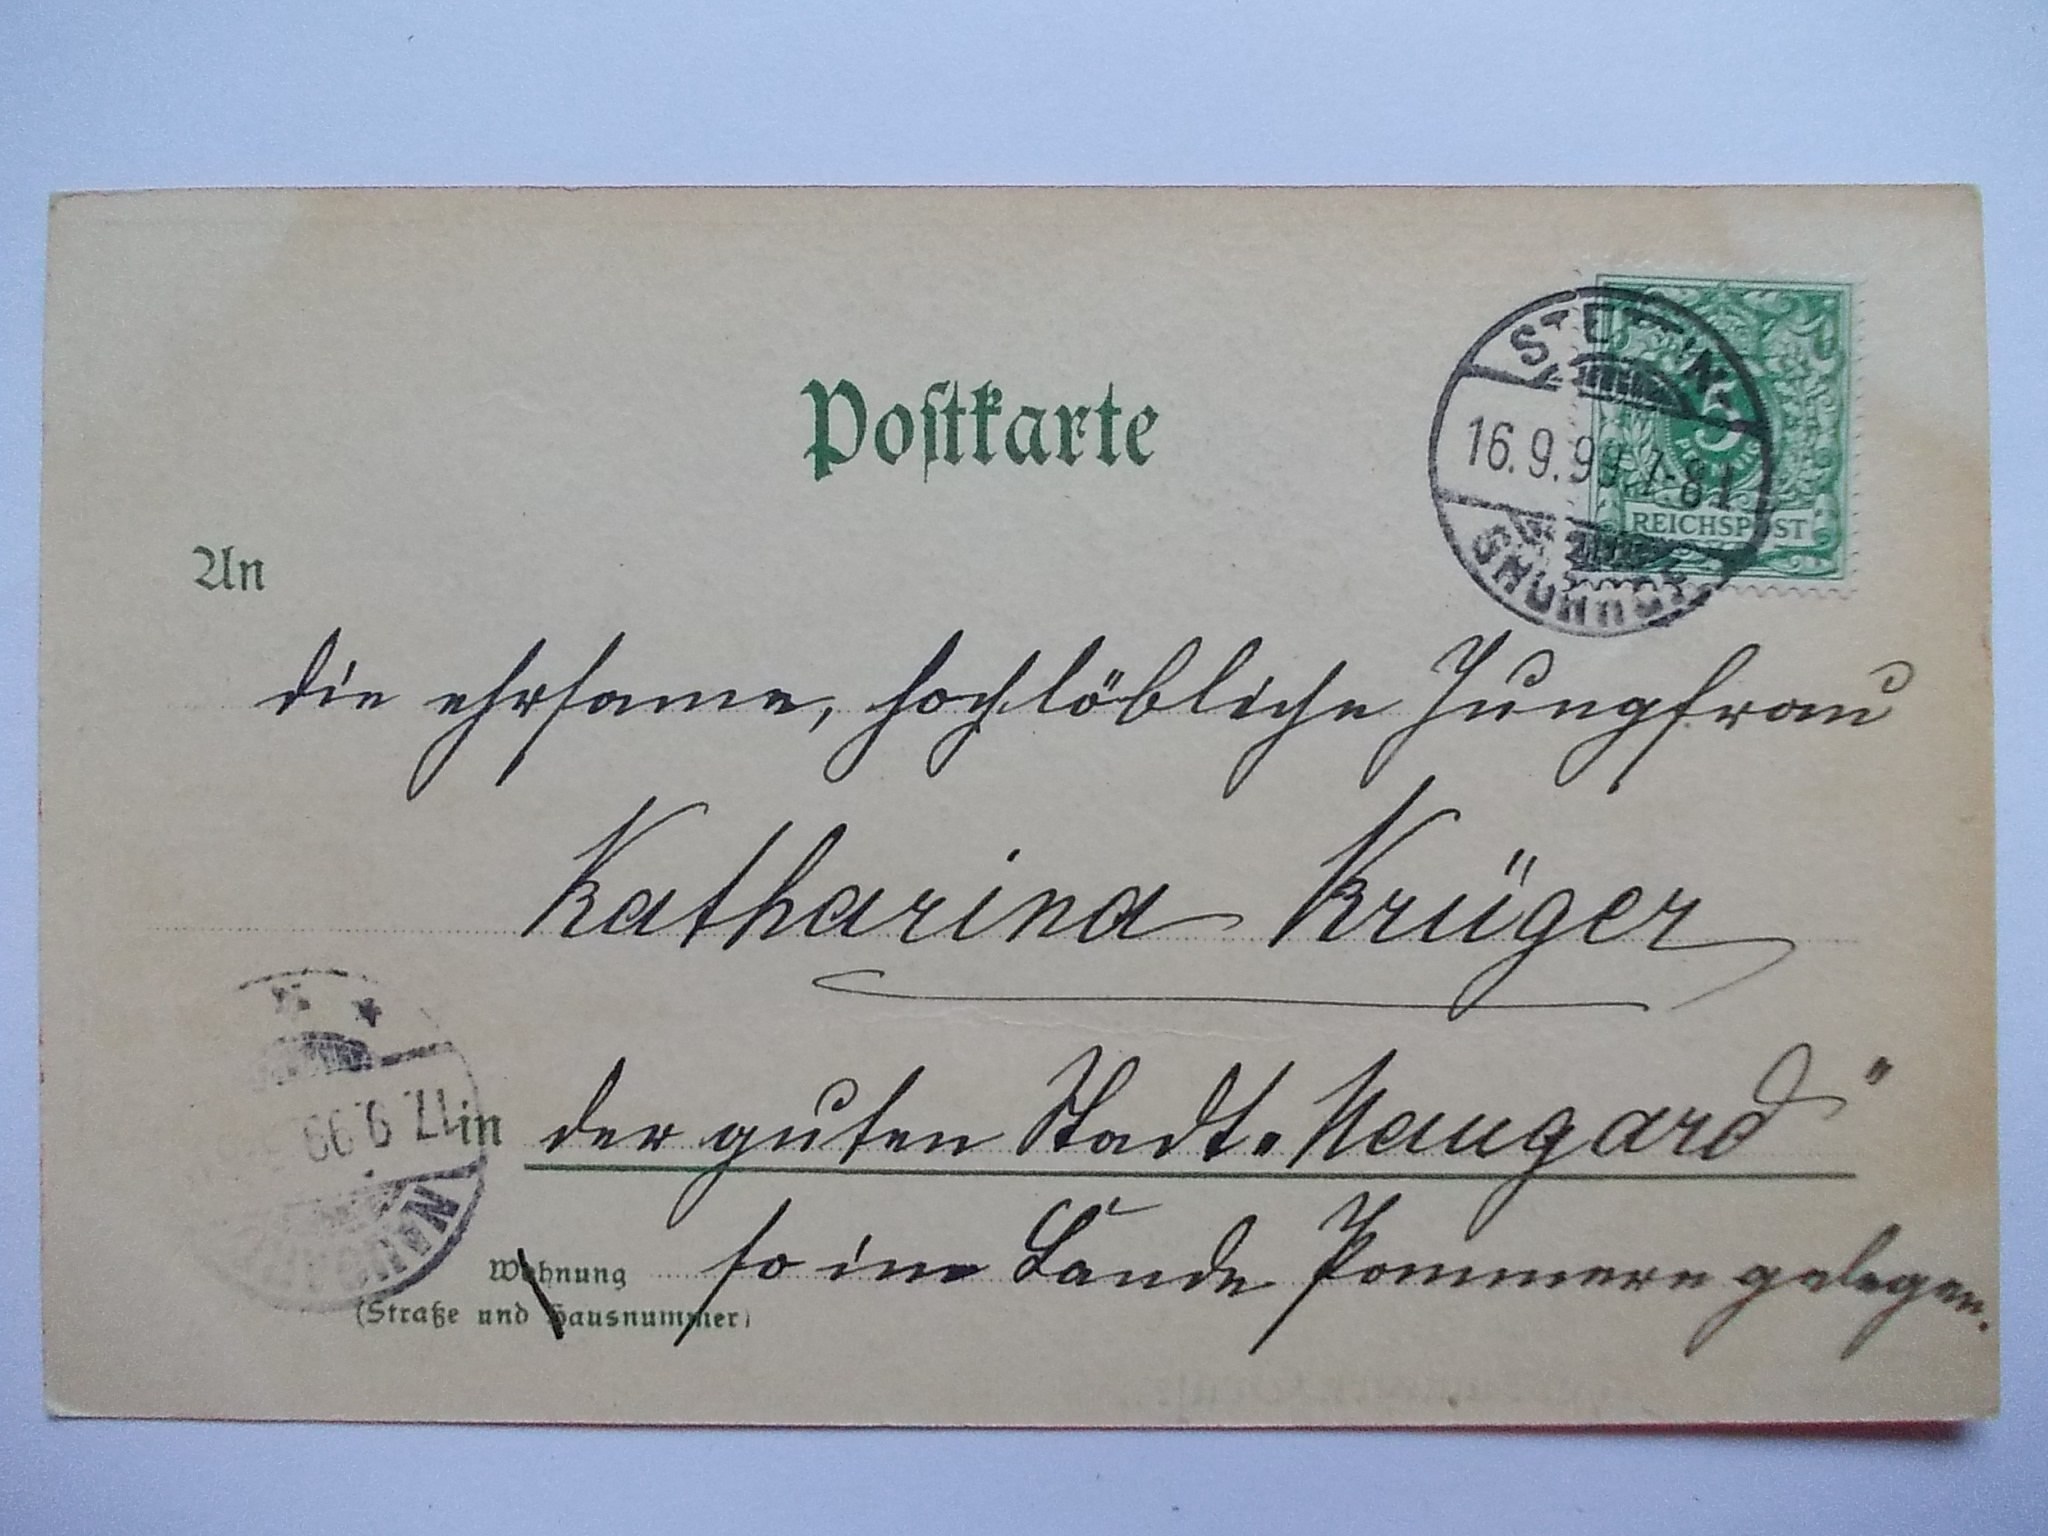 Postkarte
STETTIN
16.9.99.7-8
5
PFENNIG
REICHSPOST
An
die ehrsame, hochlöbliche Jungfrau
Katharina Krüger
17.9.99
NAUGARD
in der guten Stadt „Naugard"
Wohnung so im Lande Pommern gelegen.
(Straße und Hausnummer)